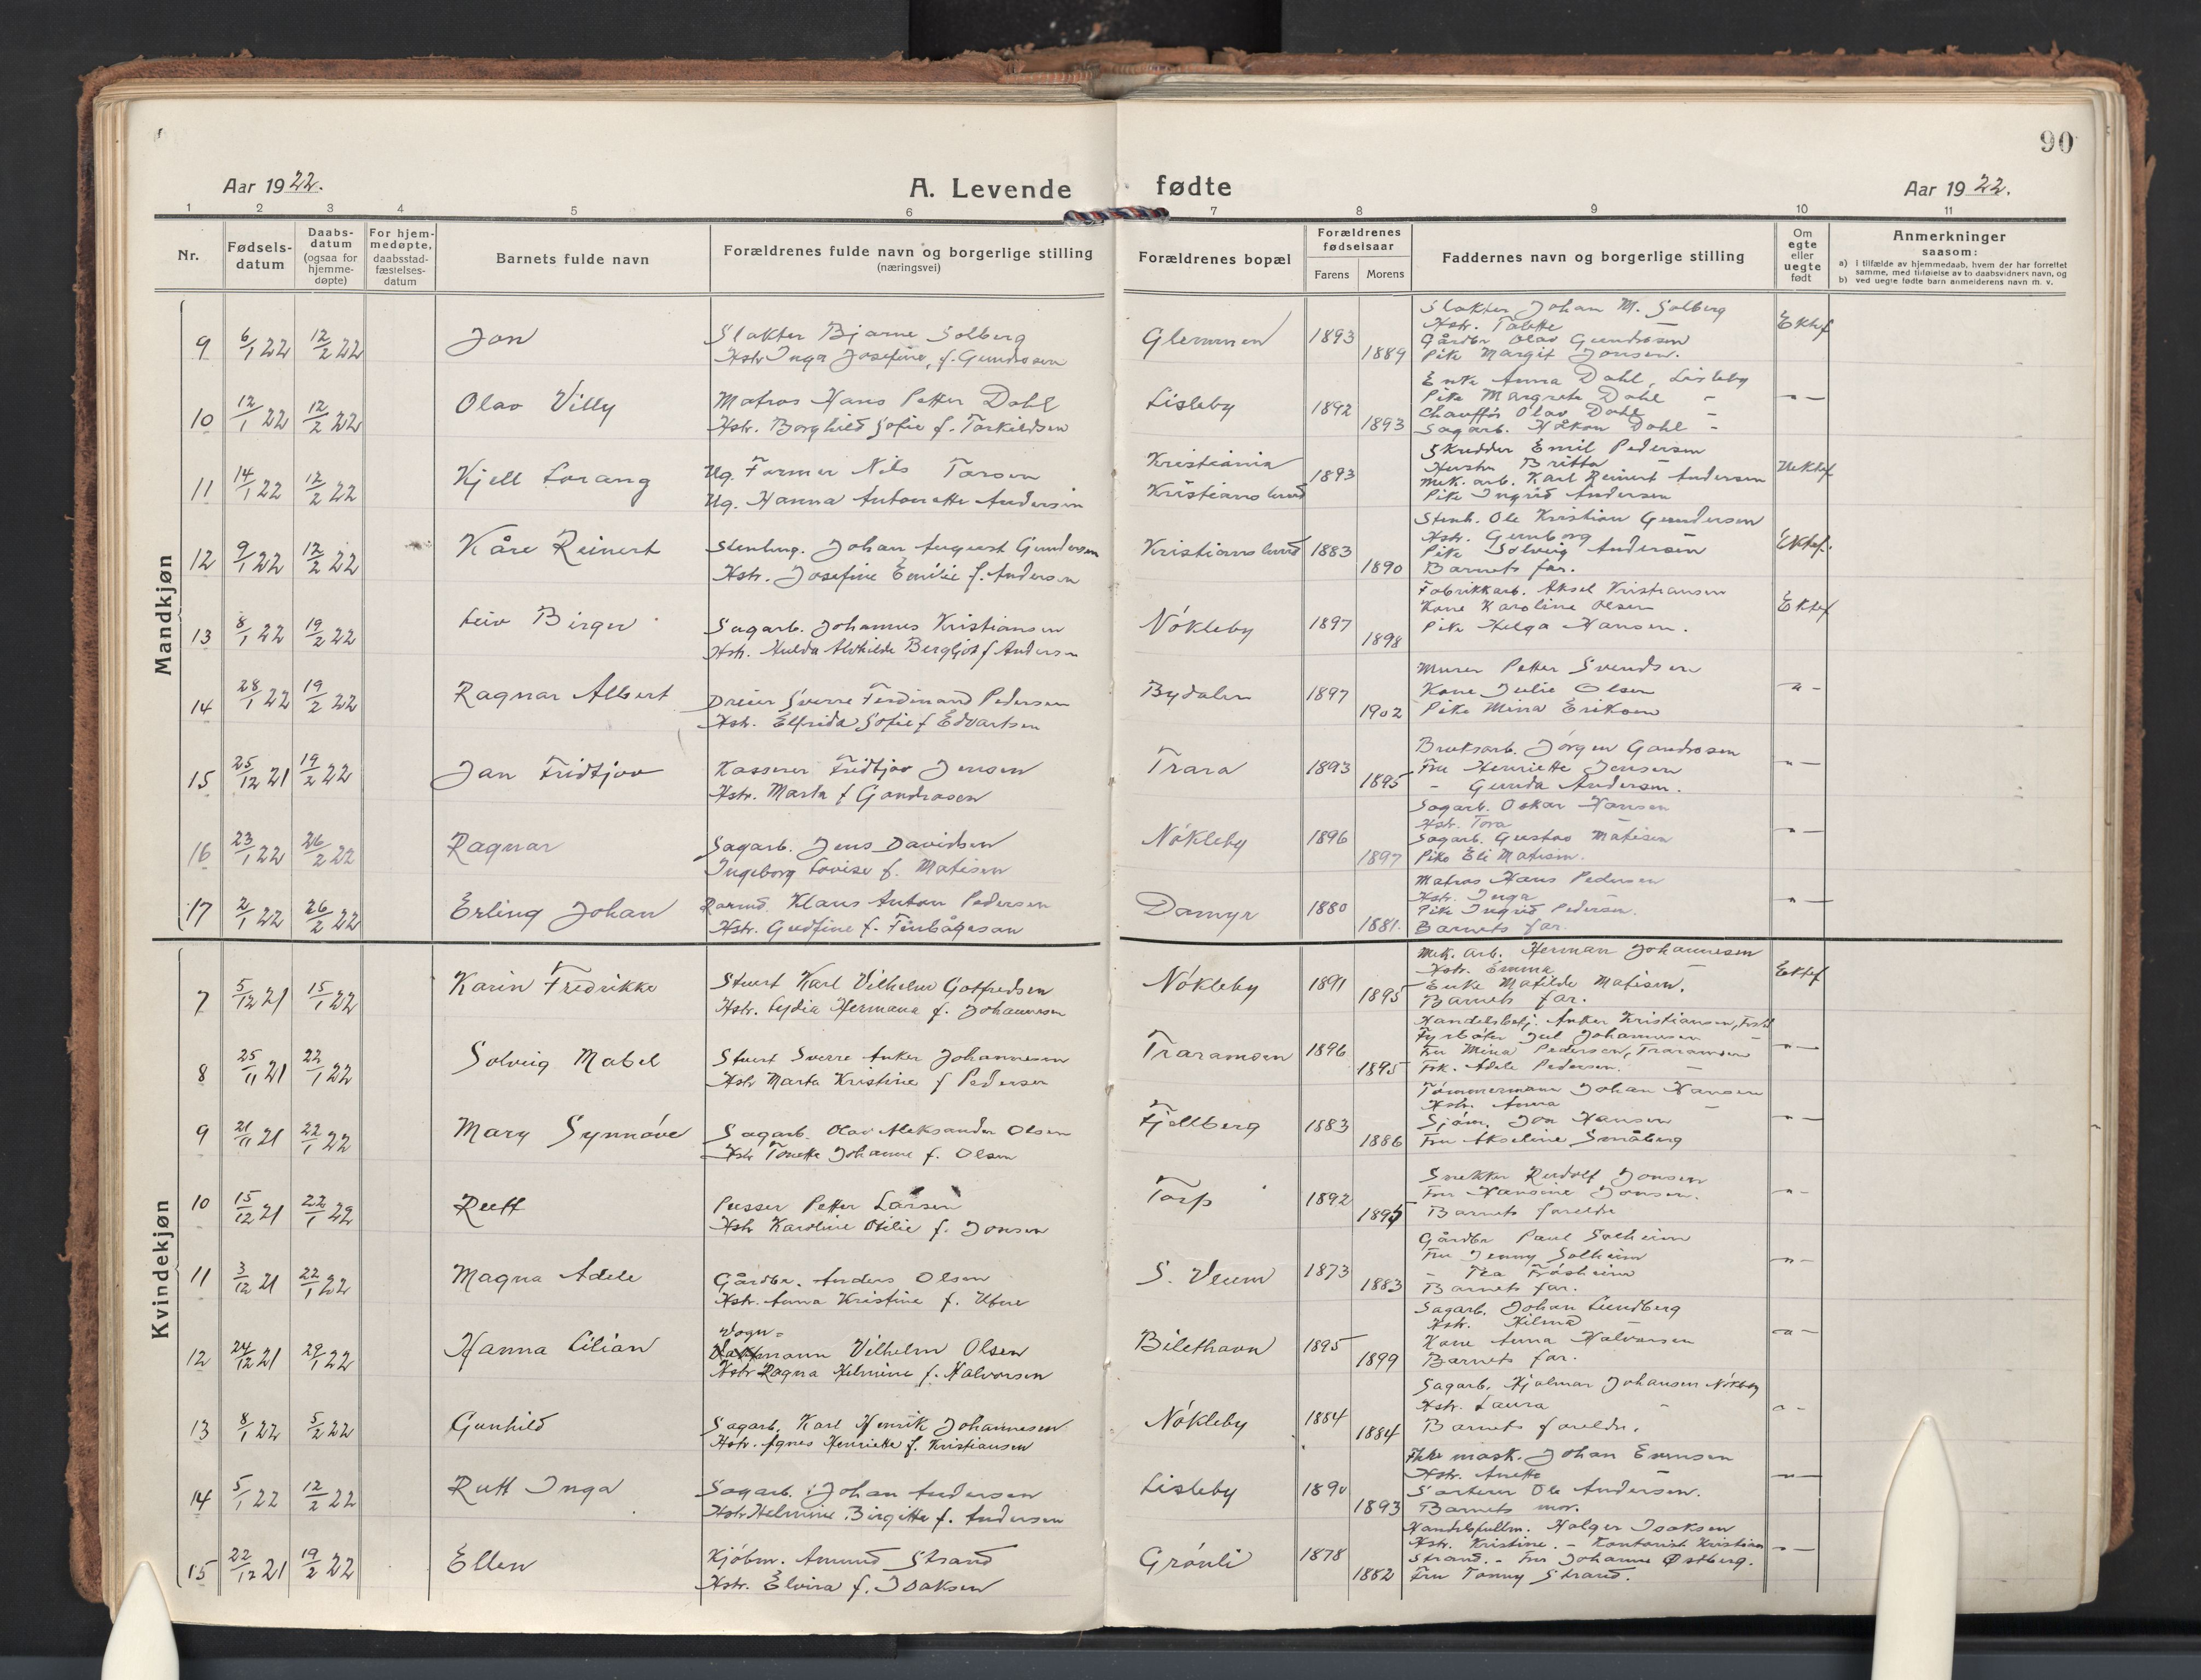 90
Aar 1922.
A. Levende fødte
Aar 1922.
1 2 3 4 5 6 7 8 9 10 11
Nr.
Fødsels-
datum
Daabs-
datum
(ogsaa for
hjemme-
døpte)
For hjem-
medøpte,
daabsstad-
fæstelses-
datum
Barnets fulde navn
Forældrenes fulde navn og borgerlige stilling
(næringsvei)
Forældrenes bopæl
Forældrenes
fødselsaar
Farens Morens
Faddernes navn og borgerlige stilling
Om
egte
eller
uegte
født
Anmerkninger
saasom:
a) i tilfælde av hjemmedaab, hvem der har forrettet
samme, med tilføielse av to daabsvidners navn, og
b) ved uegte fødte barn anmelderens navn m. v.
Mandkjøn
9 6/1 22 12/2 22 Jon
Slakter Bjarne Solberg
Hstr Inga Josefine, f. Gundrosen
Glemmen 1893 1889
Slakter Johan M. Solberg
Hstr. Talette
Gårdbr Olav Gundrosen
Pike Margit Jonsen.
Ektef
10 12/1 22 12/2 22 Olav Villy
Matros Hans Petter Dahl
Hstr. Borghild Sofie f. Torkildsen
Lisleby 1892 1893
Enke Anna Dahl, Lisleby
Pike Margrete Dahl -
Chauffør Olav Dahl -
Sagarb. Håkon Dahl -
-"-
11 14/1 22 12/2 22 Kjell Lorang
Ug. Farmer Nils Tarsen
Ug. Hanna Antonette Andersen
Kristiania
Kristianslund
1893
Skredder Emil Pedersen
Hustru Britta -
Mek. arb. Karl Reinert Andersen
Pike Ingrid Andersen
Uektef
12 9/1 22 12/2 22 Kåre Reinert
Stenhug. Johan August Gundersen
Hstr. Josefine Emilie f. Andersen
Kristianslund 1883 1890
Stenh. Ole Kristian Gundersen
Hstr. Gunborg -
Pike Solveig Andersen
Barnets far.
Ektef.
13 8/1 22 19/2 22 Leiv Birger
Sagarb. Johannes Kristiansen
Hstr. Hulda Alvhilde Bergljot f Andersen
Nøkleby 1897 1898
Fabrikkarb. Aksel Kristiansen
Kone Karoline Olsen
Pike Helga Hansen.
Ektef
14 28/1 22 19/2 22 Ragnar Albert
Dreier Sverre Ferdinand Pedersen
Hstr. Elfrida Sofie f Edvartsen
Bydalen 1897 1902
Murer Petter Svendsen
Kone Julie Olsen
Pike Mina Eriksen
-"-
15 25/12 21 19/2 22 Jan Fridtjov
Kasserer Fridtjov Jensen
Hstr. Marta f Gundrosen
Trara 1893 1895
Bruksarb. Jørgen Gundrosen
Fru Henriette Jensen
- Gunda Andersen.
-"-
16 23/1 22 26/2 22 Ragnar
Sagarb. Jens Davidsen
Ingeborg Lovise f. Matisen
Nøkleby 1896 1897
Sagarb. Oskar Hansen
Hstr. Tora -
Sagarb. Gustav Matisen
Pike Eli Matisen.
-"-
17 2/1 22 26/2 22 Erling Johan
Klaus Anton Pedersen
Hstr. Gudfine f.
Damyr 1880 1881.
Matros Hans Pedersen
Hstr. Inga -
Pike Ingrid Pedersen.
Barnets far.
-"-
Kvindekjøn
7 5/12 21 15/1 22 Karin Fredrikke
Stuert Karl Vilhelm Gotfredsen
Hstr. Lydia Hermana f. Johannesen
Nøkleby 1891 1895
Mek. arb. Herman Johannesen
Hstr. Emma -
Enke Matilde Matisen.
Barnets far.
Ektef
8 25/11 21 22/1 22 Solveig Mabel
Stuert Sverre Anker Johannesen
Hstr Marta Kristine f Pedersen
Traramoen 1896 1895
Handelsbetj. Anker Kristiansen,
Fyrbøter Jul Johannesen -
Fru Mina Pedersen, Traramoen
Frk. Adele Pedersen. -
-"-
9 21/11 21 22/1 22 Mary Synnøve
Sagarb. Olav Aleksander Olsen
Hstr Tonette Johanne f. Olsen
Fjellberg 1883 1886
Tømmermann Johan Hansen
Hstr. Anna -
Sjøm. Jon Hansen
Fru Akseline Småberg
-"-
10 15/12 21 22/1 22 Rutt
Pusser Petter Larsen
Hstr Karoline Otilie f. Jonsen
Torp 1892 1895
Snekker Rudolf Jonsen
Fru Hansine Jonsen.
Barnets foreldre
-"-
11 3/12 21 22/1 22 Magna Adele
Gårdbr. Anders Olsen
Hstr. Anna Kristine f. Ufere
S. Veum 1873 1883
Gårdbr Paul Solheim
Fru Jenny Solheim
- Tea Frøsheim
Barnets far.
-"-
12 24/12 21 29/1 22 Hanna Lilian
Vogn-
mann Vilhelm Olsen
Hstr Ragna Helmine f. Halvorsen
Bilethavn 1895 1899
Sagarb. Johan Lundberg
Hstr. Hilma -
Kone Anna Halvorsen
Barnets far.
-"-
13 8/1 22 5/2 22 Gunhild
Sagarb. Karl Henrik Johannesen
Hstr. Agnes Henriette f. Kristiansen
Nøkleby 1884 1884
Sagarb. Hjalmar Johansen Nøkleby
Hstr. Laura -
Barnets foreldre.
-"-
14 5/1 22 12/2 22 Rutt Inga
Sagarb. Johan Andersen
Hstr Helmine Birgitte f. Andersen
Lisleby 1890 1893
mask. Johan Evensen
Hstr. Anette -
Sorterer Ole Andersen.
Barnets mor.
-"-
15 22/12 21 19/2 22 Ellen
Kjøbm. Amund Strand
Hstr. Elvira f. Isaksen
Grønli 1878 1882
Handelsfullm. Holger Isaksen
Hstr. Kristine. - Kontorist Kristian
Strand. - Fru Johanne Østberg.
Fru Tonny Strand.
-"-